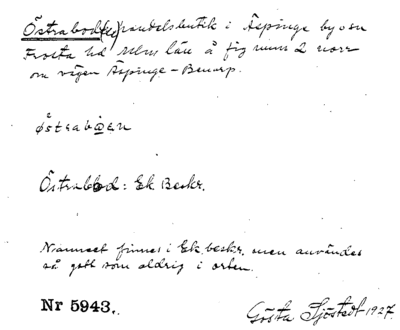 Östrabod(en) handelsbutik i Äspinge by o sn
Frosta hd Mlm län å fig num 2 norr
om vägen Äspinge–Benarp.
östrabōen
Östrabod: Ek Beskr.
Namnet finnes i Ek. beskr. men användes
så gott som aldrig i orten.
Nr 5943.
Gösta Sjöstedt 1927.